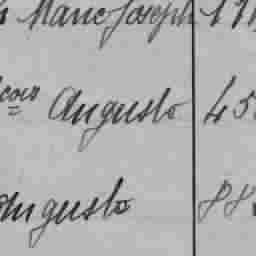 Marie Joseph
çois Auguste 45
Auguste 88